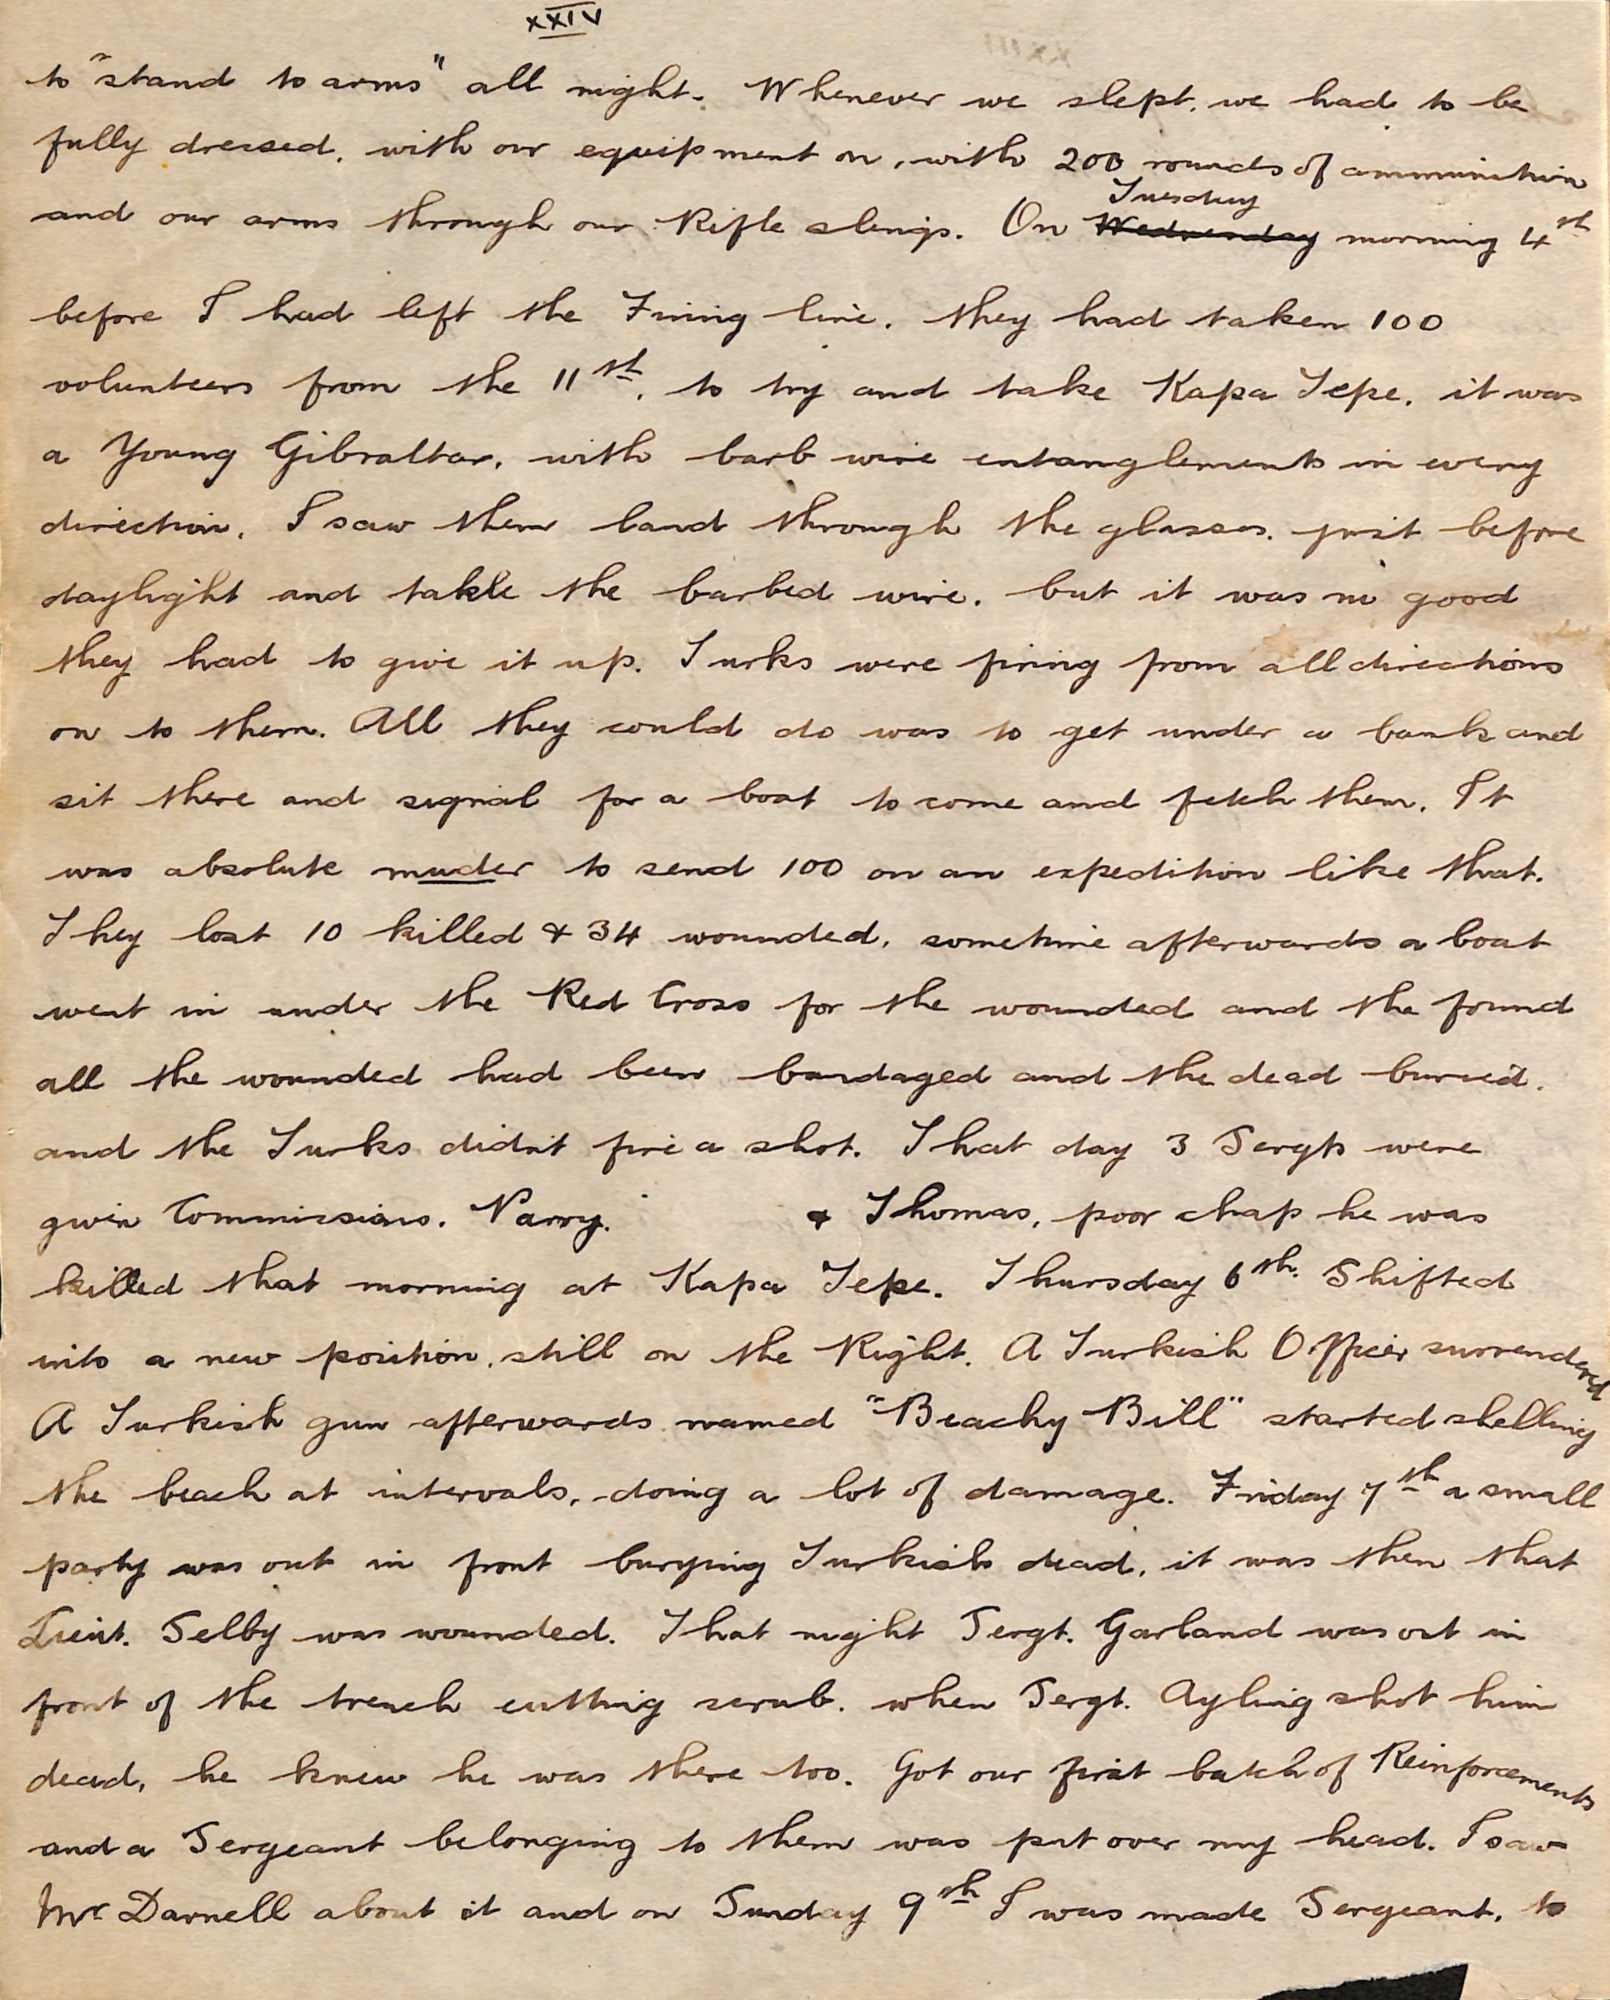 XXIV
to "stand to arms" all night. Whenever we slept, we had to be
fully dressed, with our equipment on, with 200 rounds of ammunition
Tuesday
and our arms through our Rifle slings. On Wednesday morning 4th
before I had left the Firing line, they had taken 100
volunteers from the 11th, to try and take Kapa Tepe, it was
a Young Gibraltar, with barb wire entanglements in every
direction. I saw them land through the glasses, just before
daylight and takle the barbed wire, but it was no good
they had to give it up. Turks were firing from all directions
on to them. All they could do was to get under a bank and
sit there and signal for a boat to come and fetch them. It
was absolute muder to send 100 on an expedition like that.
They lost 10 killed & 34 wounded, sometime afterwards a boat
went in under the Red Cross for the wounded and the found
all the wounded had been bandaged and the dead buried,
and the Turks didn't fire a shot. That day 3 Sergts were
given Commissions. Parry. & Thomas, poor chap he was
killed that morning at Kapa Tepe. Thursday 6th. Shifted
into a new position, still on the Right. A Turkish Officer surrendered
A Turkish gun afterwards named "Beachy Bill" started shelling
the beach at intervals, doing a lot of damage. Friday 7th a small
party was out in front burying Turkish dead, it was then that
Lieut. Selby was wounded. That night Sergt. Garland was out in
front of the trench cutting scrub, when Sergt. Ayling shot him
dead, he knew he was there too. Got our first batch of Reinforcements
and a Sergeant belonging to them was put over my head. I saw
Mr Darnell about it and on Sunday 9th I was made Sergeant, to